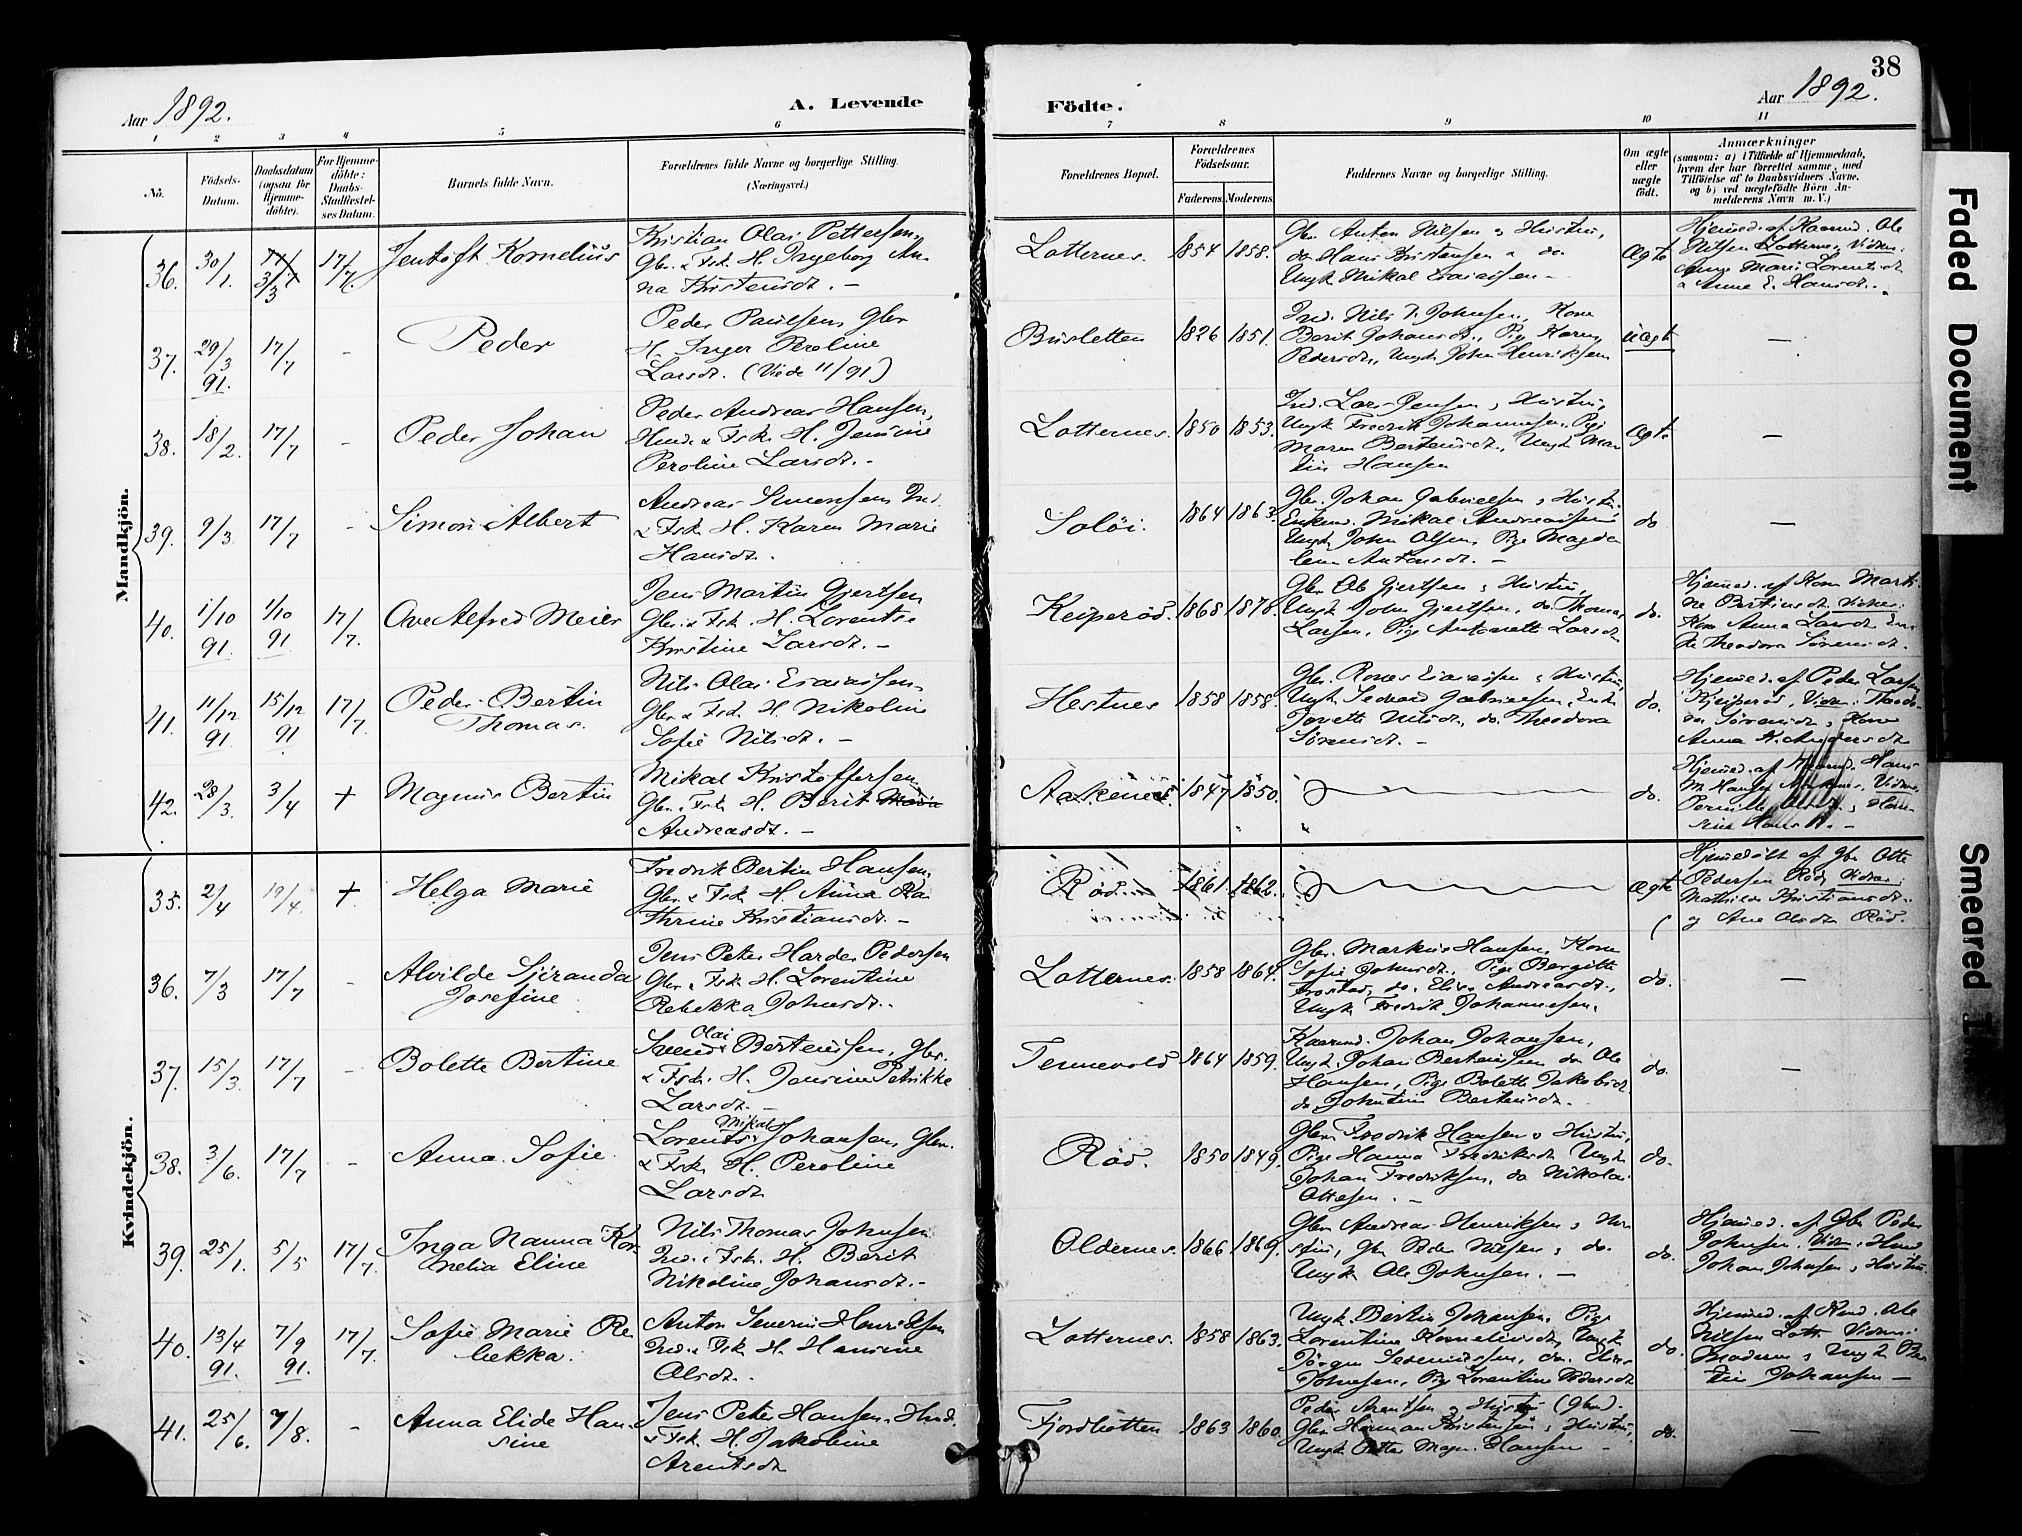 38
Aar 1892.
A. Levende
Födte.
Aar 1892.
1 2 3 4 5 6 7 8 9 10 11
No.
Födsels-Datum.
Daabsdatum (ogsaa för Hjemme-döbte).
For Hjemme-döbte: Daabs-Stadfæstel-ses Datum.
Barnets fulde Navn.
Forældrenes fulde Navne og borgerlige Stilling.
(Næringsvei.)
Forældrenes Bopæl.
Forældrenes Födselsaar.
Faderens. Moderens.
Faddernes Navne og borgerlige Stilling.
Om ægte eller uægte födt.
Anmærkninger
(saasom: a) i Tilfælde af Hjemmedaab,
hvem der har forrettet samme, med
Tilföielse af to Daabsvidners Navne,
og b) ved uægtefödte Börn An-
melderens Navn m. V.)
Mandkjön.
36. 30/1. 3/3 17/7. Jentoft Kornelius
Kristian Olai Pettersen,
Gbr. & Fsk. H. Ingeborg An-
na Kristensdt. –
Lotternes. 1854 1858.
Gbr. Anton Nilsen & Hustru,
do Hans Kristensen & do
Ungk. Mikal Esaiassen –
Ægte
Hjemmed. af Kaarmd. Ole
Nilsen Lotternes, Vidner:
Marie Lorentsdt
& Anne E. Hansdt.
37. 29/3 91. 17/7 - Peder
Peder Paulsen Gbr
H. Inger Peroline
Larsdt. (Viede 11/91)
Busletten 1826 1851.
Ind. Nils J. Johnsen, Kone
Berit Johansdt., Pige Karen
Pedersdt., Ungk. John Henriksen
uægte —
38. 18/2. 17/7 - Peder Johan
Peder Andreas Hansen,
Hmd. & Fsk. H. Jensine
Peroline Larsdt. -
Lotternes. 1850 1853.
Ind. Lars Jensen & Hustru,
Ungk. Fredrik Johannesen, Pige
Maren Bertensdt., Ungk. Mar-
tin Hansen
Ægte —
39. 9/3. 17/7 - Simon Albert
Andreas Simonsen Ind.
& Fsk. H. Karen Marie
Hansdt.
Solöi. 1864 1863.
Gbr. Johan Gabrielsen & Hustru,
Enkem. Mikal Andreassen
Ungk. John Olsen, Pige Magda-
lena Antonsdt. -
do. —
40. 1/10 91. 1/10 91 17/7. Ove Alfred Meier
Jens Martin Gjertsen
Gbr. & Fsk. H. Lorents.
Kristine Larsdt. -
Keiperöd. 1868 1878.
Gbr. Ole Gjertsen & Hustru,
Ungk. John Gjertsen, do. Thomas
Larsen, Pige Antonette Larsdt
do.
Hjemmed. af Kone Marti-
ne Bertinsdt. Vidner:
Kone Anna Larsdt. En-
ke Theodora Sörensdt.
41. 11/12 91 15/12 91 17/7. Peder Bertin
Thomas.
Nils Olai Esaiassen
Gbr. & Fsk. H. Nikoline
Sofie Nilsdt. –
Hestnes 1858 1858.
Gbr. Esaiassen & Hustru,
Ungk. Gabrielsen, Enke
Nilsdt., do. Theodora
Sörensdt. –
do.
Hjemmed. af Peder Larsen
Keiperöd, Vidner: Theodo-
ra Sörensdt. & Kone
Anna K. Andersdt
42. 28/3. 3/4 + Magnus Bertin
Mikal Kristoffersen
Gbr. & Fsk. H. Berit Maria
Andreasdt. –
Aakenes 1847 1850.
do.
Hjemmed. af Hans
M. Hansen Vidner
Pernille & Han-
sine Hansdt. –
Kvindekjön.
35. 2/4 19/4. + Helga Marie
Fredrik Bertin Hansen,
Gbr. & Fsk. H. Anna Ka-
thrine Kristiansdt. –
Röd. 1861 1862.
ægte
Hjemmedöbt af Gbr Otto
Pedersen Röd, Vidner:
Mathilde Kristiansdt.
og Ane Olsdt. Röd.
36. 7/3 17/7 - Alvilde Sjeranda
Josefine
Jens Peter Harder Pedersen
Gbr. & Fsk. H. Lorentine
Rebekka Johnsdt.
Lotternes. 1858 1864.
Gbr. Markus Hansen, Kone
Sofie Johnsdt., Pige Bergitte
Frostad, do. Elise Andreasdt.,
Ungk. Fredrik Johannesen.
do. —
37. 15/3. 17/7 - Bolette Bertine
Olai
Svend Bertensen, Gbr.
& Fsk. H. Jensine Petrikke
Larsdt. –
Tennevold 1864 1859.
Kaarmd. Johan Johansen,
Ungk. Johan Bertensen do Ole
Hansen, Pige Bolette Jakobsdt
do Johntine Bertensdt.
do. —
38. 3/6. 17/7 - Anna Sofie
Mikal
Lorents Johansen, Gbr.
& Fsk. H. Peroline
Larsdt
Röd. 1850 1849.
Gbr. Fredrik Hansen & Hustru,
Pige Hanna Fredriksdt Ungk.
Johan Fredriksen, do Nikolai
Ottesen. –
do.
39. 25/1. 5/5 17/7. Inga Nanna Kor-
nelia Eline
Nils Thomas Johnsen
Ind. & Fsk. H. Berit
Nikoline Johansdt. –
Oldernes. 1866 1869.
Gbr. Andreas Henriksen & Hu-
stru, Gbr Peder Nilsen & do.
Ungk. Ole Johnsen. –
do.
Hjemmed. af Gbr Peder
Johnsen. Vidner: Hmd.
Johan Johnsen & Hustru.
40. 13/4 91. 7/9 91. 17/7. Sofie Marie Re-
bekka.
Anton Severin Henriksen
Ind. & Fsk. H. Hansine
Olsdt.
Lotternes. 1858 1863.
Ungk. Bertin Johansen, Pige
Lorentine Korneliusdt, Ungk
Jörgen, do. Elias
Johnsen, Pige Lorentine Pedersdt
do.
Hjemmed. af Kmd. Ole
Nilsen Lott. Vidner:
Moderen & Ungk. Ber-
tin Johansen –
41. 25/6. 7/8. - Anna Elide Han-
sine
Jens Peter Hansen, Hmd.
& Fsk. H. Jakobine
Arentsdt
Fjordbotten 1863 1860.
Peder Arentsen & Hustru (Gbr).
Gbr. Herman Kristensen & Hustru,
Ungk. Petter Magn. Hansen –
do. —
Faded Document
Smeared